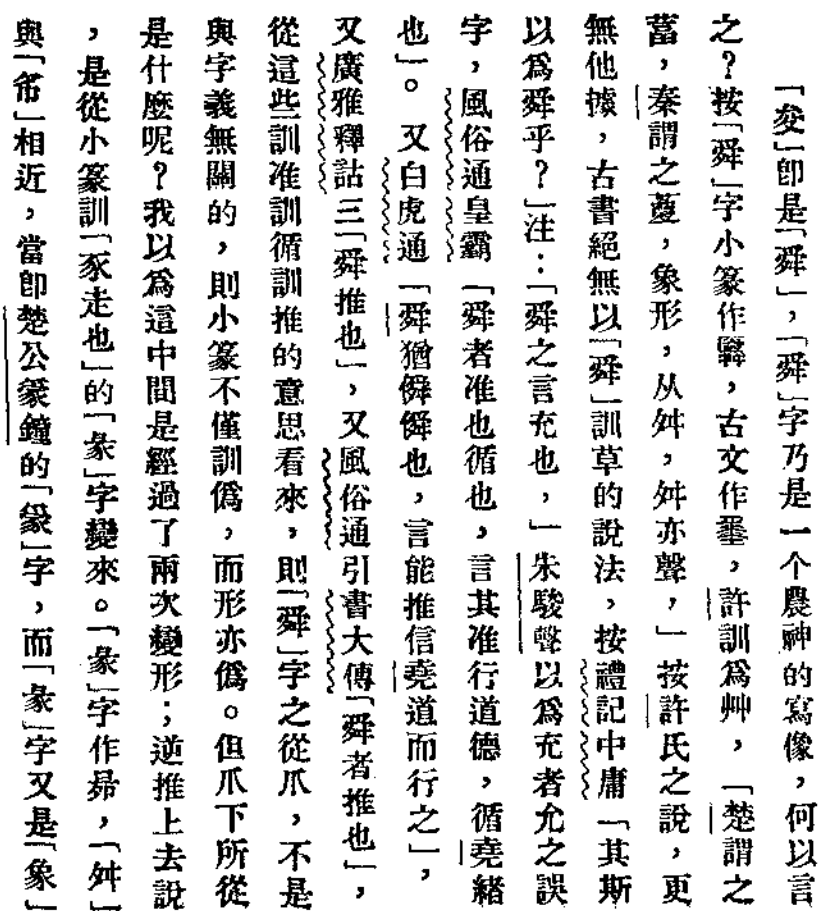 「夋」卽是「舜」，「舜」字乃是一个農神的寫像，何以言
之？按「舜」字小篆作䑞，古文作𡐨，許訓爲艸，「楚謂之
葍，秦謂之藑，象形，从舛，舛亦聲，」按許氏之說，更
無他據，古書絕無以「舜」訓草的說法，按禮記中庸「其斯
以爲舜乎？」注：「舜之言充也，」朱駿聲以爲充者允之誤
字，風俗通皇霸「舜者准也循也，言其准行道德，循堯緒
也」。又白虎通「舜猶僢僢也，言能推信堯道而行之」，
又廣雅釋詁三「舜推也」，又風俗通引書大傳「舜者推也」，
從這些訓准訓循訓推的意思看來，則「舜」字之從爪，不是
與字義無關的，則小篆不僅訓僞，而形亦僞。但爪下所從
是什麽呢？我以爲這中間是經過了兩次變形；逆推上去說
，是從小篆訓「豕走也」的「彖」字變來。「彖」字作㣇，「舛」
與「㣇」相近，當卽楚公䝞鐘的「䝞」字，而「彖」字又是「象」